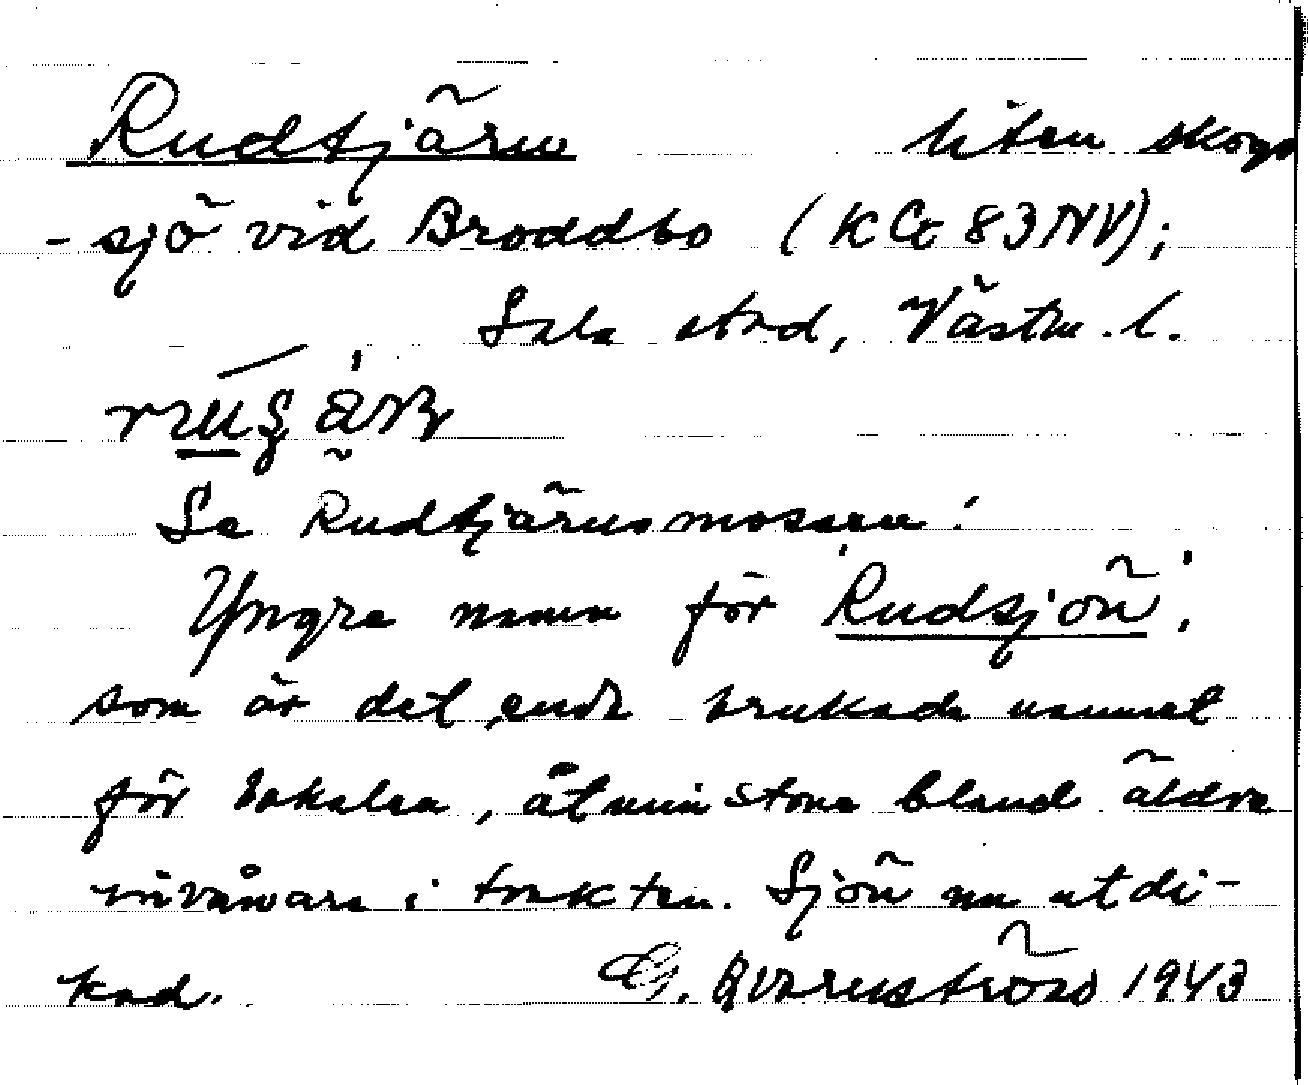 Rudtjärn liten skogs
- sjö vid Broddbo (KCt 83NV);
Sala stad, Västm. l.
Se Rudtjärnsmossen!
Yngre namn för Rudsjön,
som är det enda brukade namnet
för lokalen, åtminstone bland äldre
invånare i trakten. Sjön nu utdi-
kad. G. Qvarnström 1943